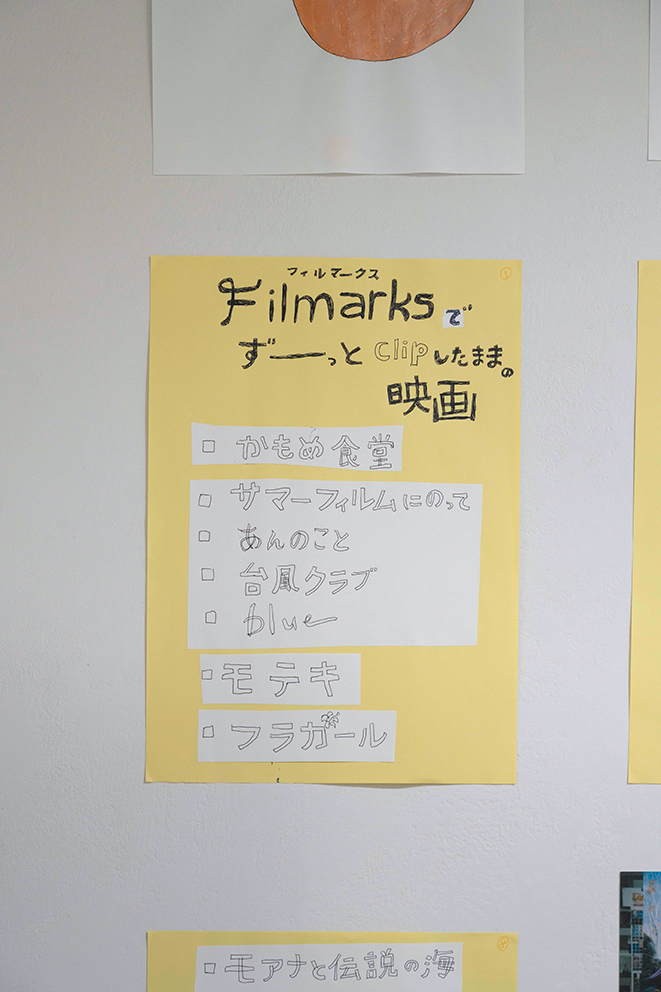 フィルマークス
Filmarksで
ずーっとclipしたままの
映画
□ かもめ食堂
□ サマーフィルムにのって
□ あんのこと
□ 台風クラブ
□ blue
□ モテキ
□ フラガール
□ モアナと伝説の海